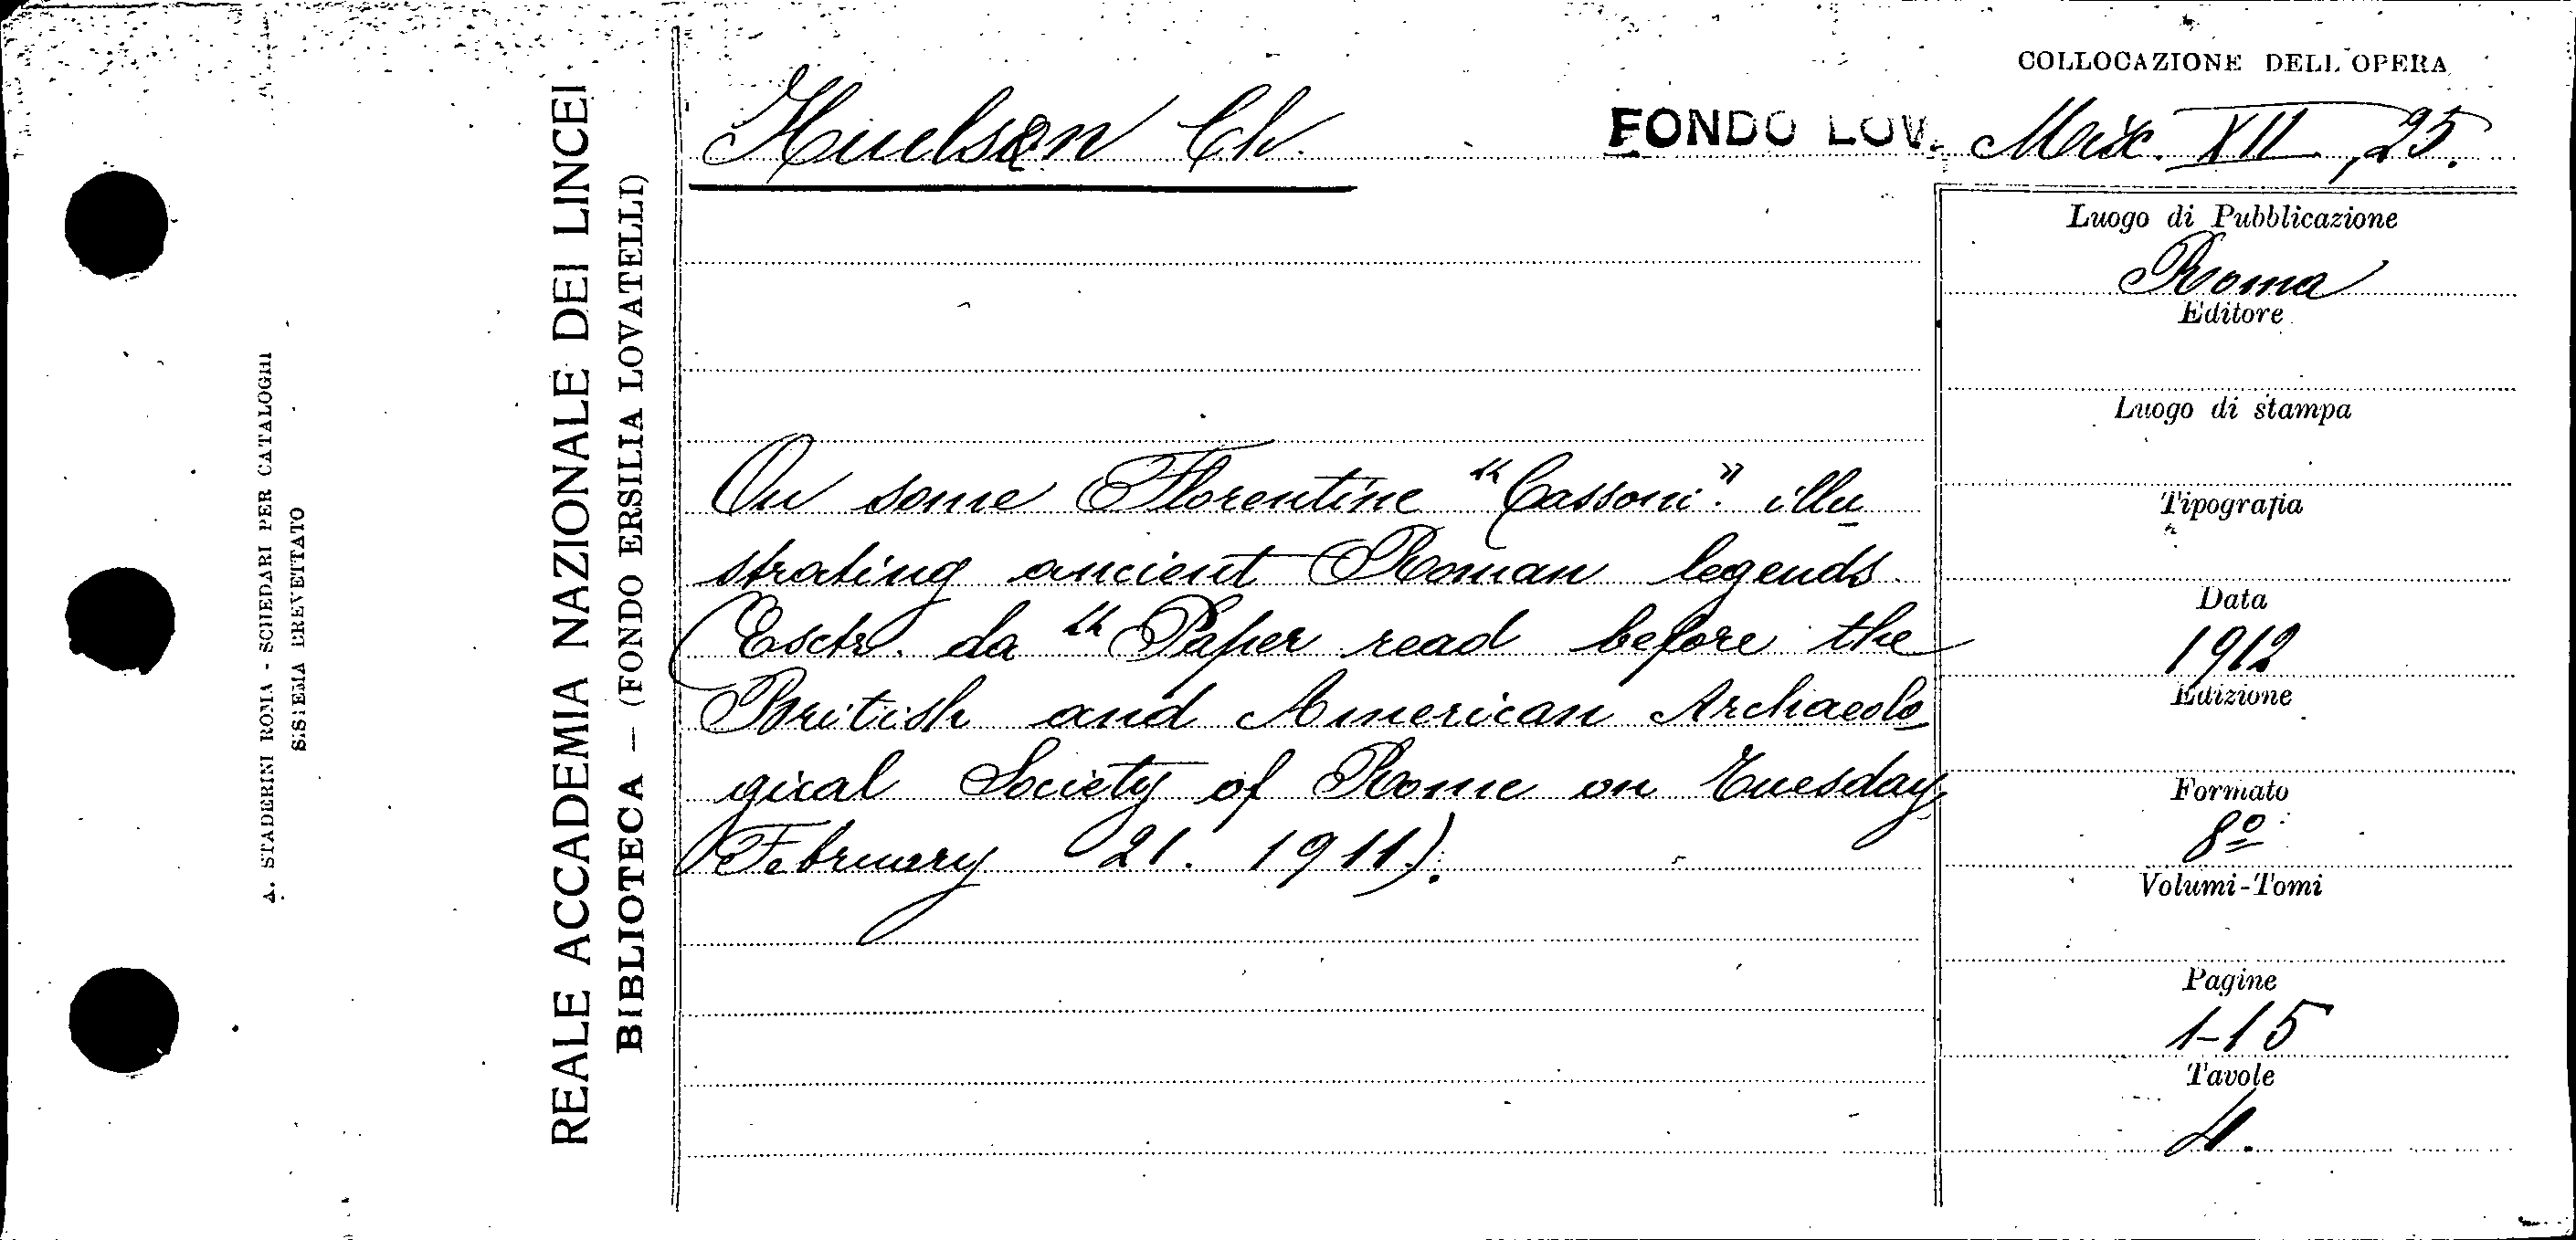 A. STADERINI ROMA - SCHEDARI PER CATALOGHI
SISTEMA BREVETTATO
REALE ACCADEMIA NAZIONALE DEI LINCEI
BIBLIOTECA — (FONDO ERSILIA LOVATELLI)
Huelsen Ch.
FONDO LOV.
COLLOCAZIONE DELL'OPERA
Misc. XII, 25.
On some Florentine "Cassoni" illu
strating ancient Roman legends.
(Estr. da "Paper read before the
British and American Archaeolo
gical Society of Rome on Tuesday,
February 21. 1911).
Luogo di Pubblicazione
Roma
Editore
Luogo di stampa
Tipografia
Data
1912
Edizione
Formato
8º
Volumi-Tomi
Pagine
1-15
Tavole
4.